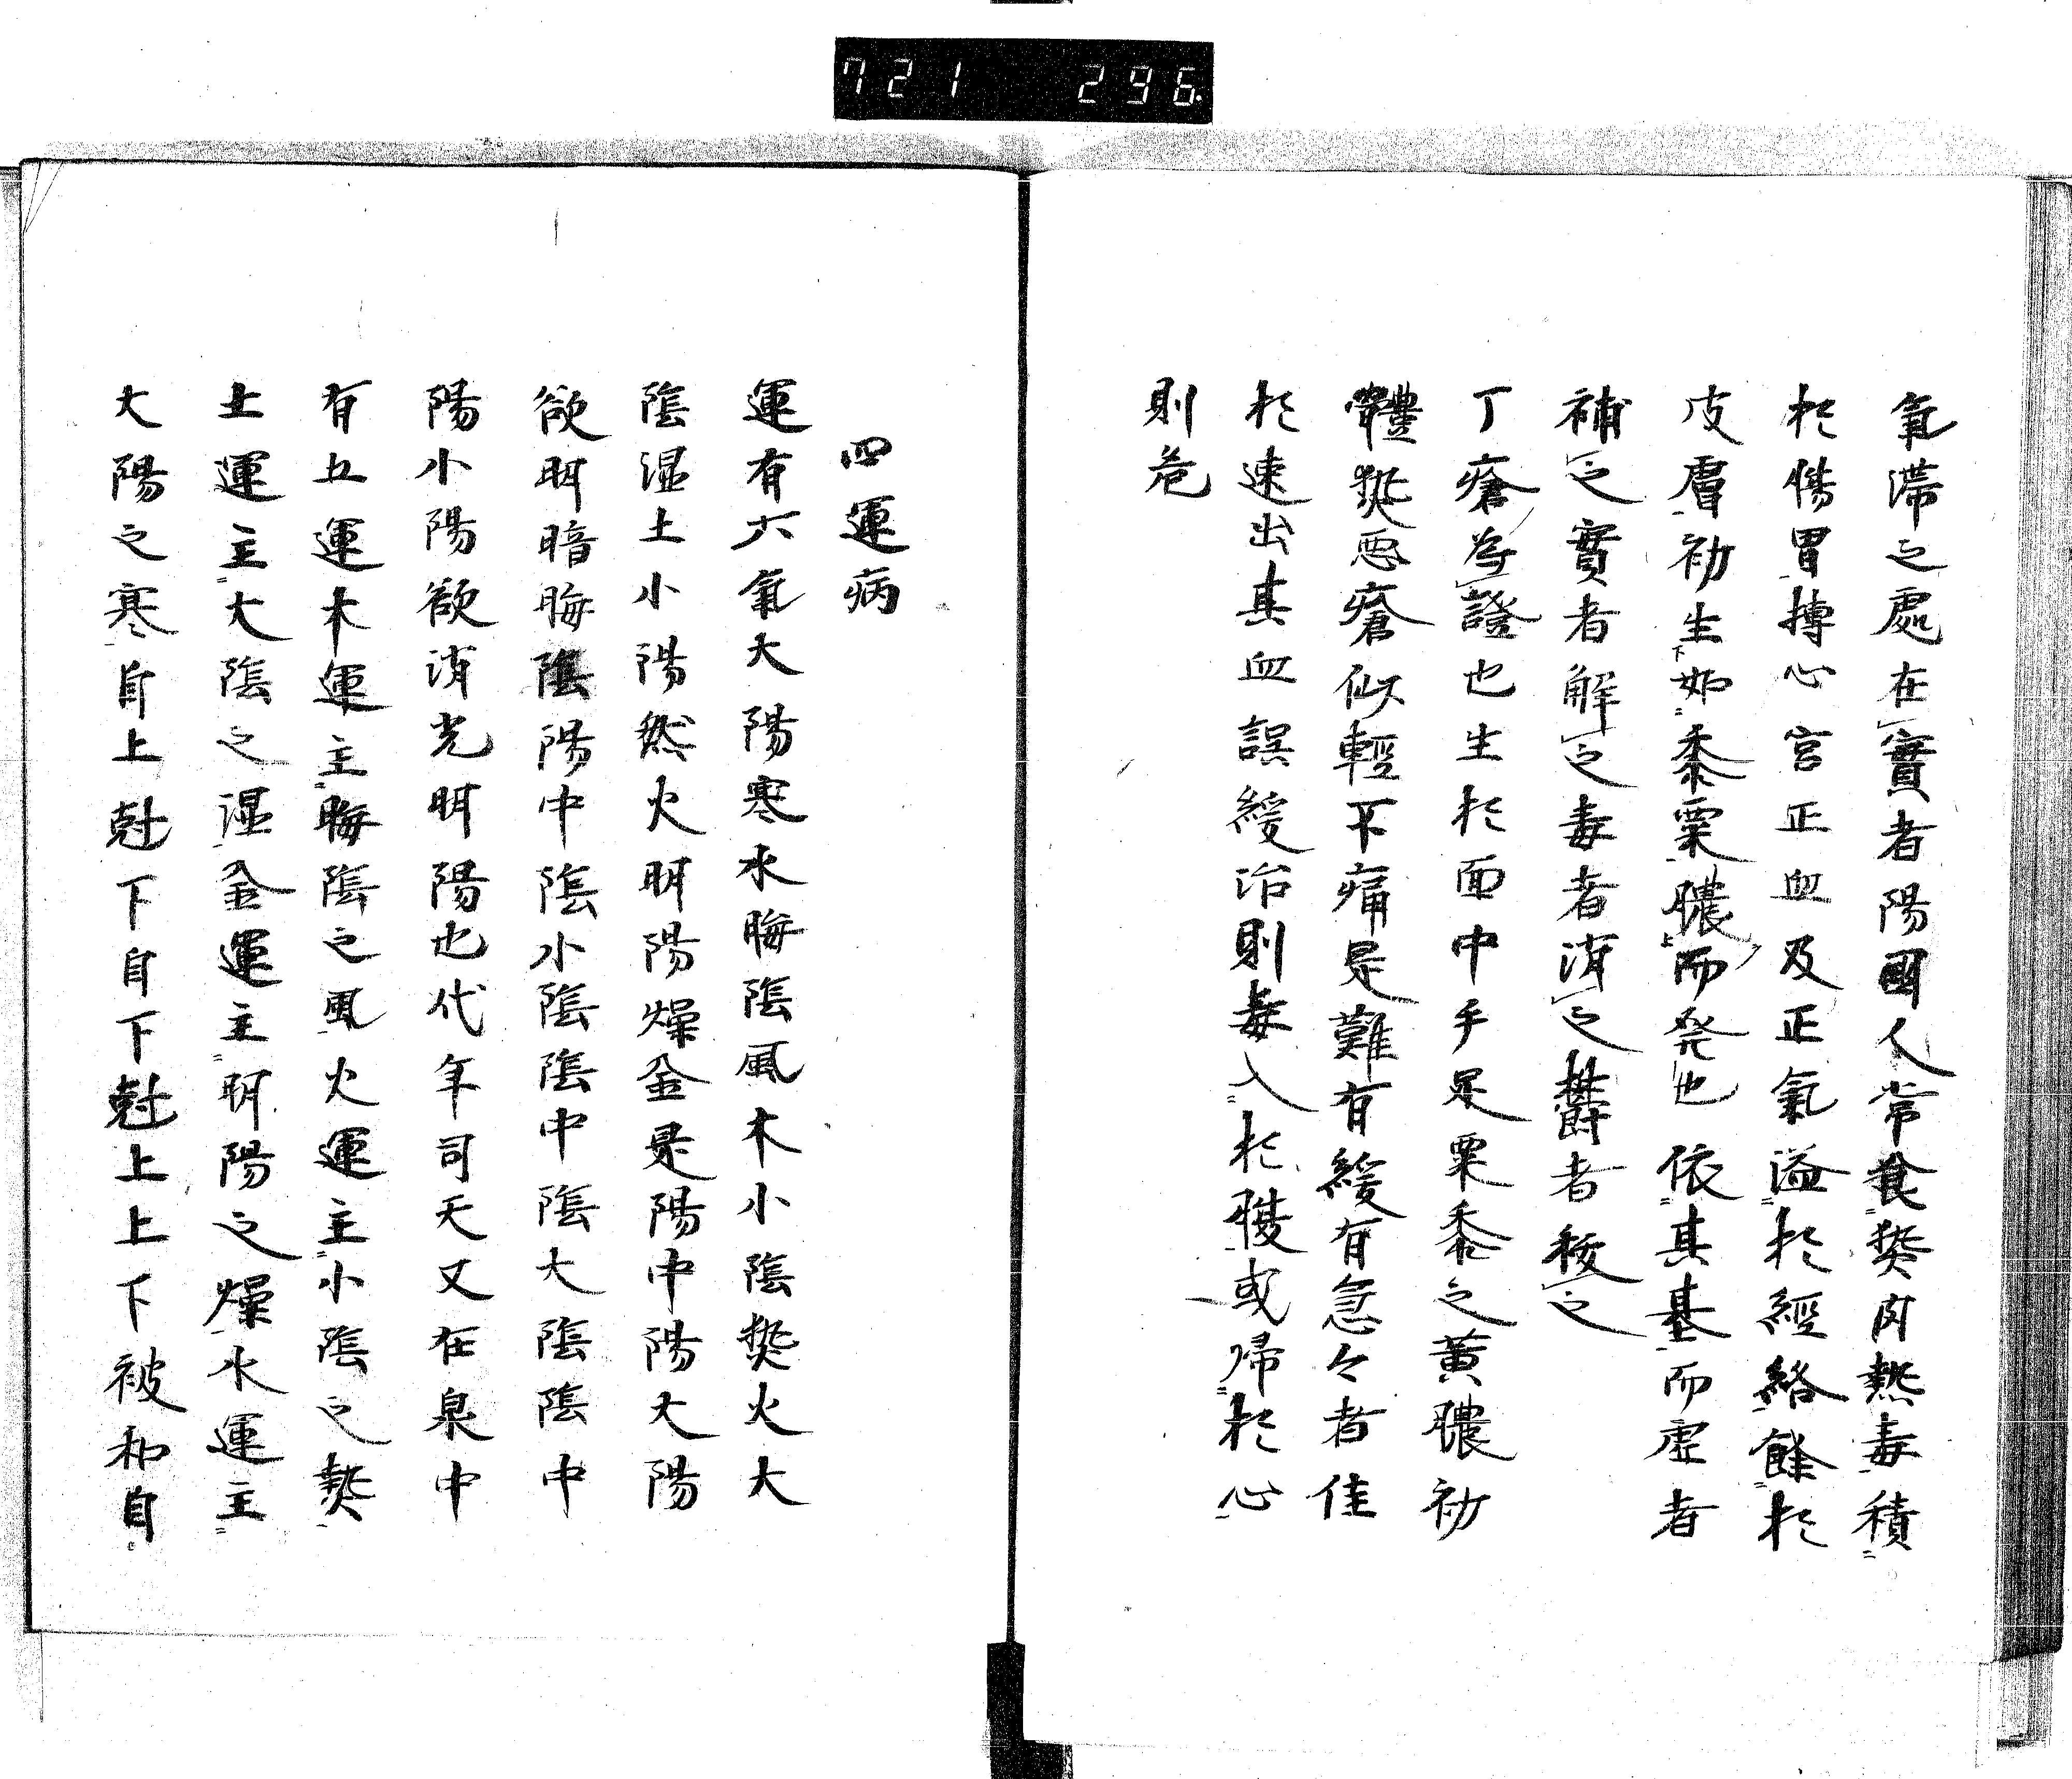 721 296
氣滯之處在實者陽國人常食𤍠肉熱毒積
於腸胃搏心宮正血及正氣溢於經絡餘於
皮膚初生如黍粟膿而発也依其基而虚者
補之實者解之毒者消之欝者 之
丁瘡為證也生於面中手足粟黍之黄膿初
體熱悪瘡似輕不痛是難有緩有急々者佳
於速出其血誤緩治則毒入於 或帰於心
則危
四運病
運有六氣大陽寒水晦隂風木小隂熱火大
隂湿土小陽然火明陽燥金是陽中陽大陽
欲明暗晦隂陽中隂小隂隂中隂大隂隂中
陽小陽欲消光明陽也代年司天又在泉中
有五運木運主晦隂之風火運主小隂之熱
土運主大隂之湿金運主明陽之燥水運主
大陽之寒自上尅下自下尅上上下被和自